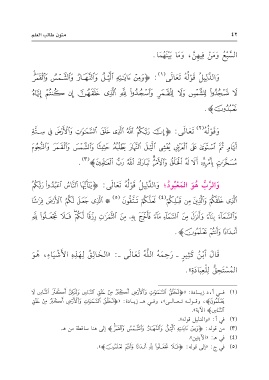 ٤٢ متون طالب العلم
السَّبْعُ وَمَنْ فِيهِنَّ، وَمَا بَيْنَهُمَا.
وَالدَّلِيلُ قَوْلُهُ تَعَالَى(١): ﴿وَمِنْ ءَايَٰتِهِ ٱلَّيْلُ وَٱلنَّهَارُ وَٱلشَّمْسُ وَٱلْقَمَرُ
لَا تَسْجُدُوا۟ لِلشَّمْسِ وَلَا لِلْقَمَرِ وَٱسْجُدُوا۟ لِلَّهِ ٱلَّذِى خَلَقَهُنَّ إِن كُنتُمْ إِيَّاهُ
تَعْبُدُونَ﴾.
وَقَوْلُهُ(٢) تَعَالَى: ﴿إِنَّ رَبَّكُمُ ٱللَّهُ ٱلَّذِى خَلَقَ ٱلسَّمَٰوَٰتِ وَٱلْأَرْضَ فِى سِتَّةِ
أَيَّامٍ ثُمَّ ٱسْتَوَىٰ عَلَى ٱلْعَرْشِ يُغْشِى ٱلَّيْلَ ٱلنَّهَارَ يَطْلُبُهُۥ حَثِيثًا وَٱلشَّمْسَ وَٱلْقَمَرَ وَٱلنُّجُومَ
مُسَخَّرَٰتٍۭ بِأَمْرِهِۦٓ أَلَا لَهُ ٱلْخَلْقُ وَٱلْأَمْرُ تَبَارَكَ ٱللَّهُ رَبُّ ٱلْعَٰلَمِينَ﴾(٣).
وَالرَّبُّ هُوَ المَعْبُودُ؛ وَالدَّلِيلُ قَوْلُهُ تَعَالَى: ﴿يَٰٓأَيُّهَا ٱلنَّاسُ ٱعْبُدُوا۟ رَبَّكُمُ
ٱلَّذِى خَلَقَكُمْ وَٱلَّذِينَ مِن قَبْلِكُمْ(٤) لَعَلَّكُمْ تَتَّقُونَ(٥) * ٱلَّذِى جَعَلَ لَكُمُ ٱلْأَرْضَ فِرَٰشًا
وَٱلسَّمَآءَ بِنَآءً وَأَنزَلَ مِنَ ٱلسَّمَآءِ مَآءً فَأَخْرَجَ بِهِۦ مِنَ ٱلثَّمَرَٰتِ رِزْقًا لَّكُمْ فَلَا تَجْعَلُوا۟ لِلَّهِ
أَندَادًا وَأَنتُمْ تَعْلَمُونَ﴾.
قَالَ ٱبْنُ كَثِيرٍ - رَحِمَهُ اللَّهُ تَعَالَى -: «الخَالِقُ لِهَذِهِ الأَشْيَاءِ، هُوَ
المُسْتَحِقُّ لِلْعِبَادَةِ».
(٢) في أ: «والدليل قوله».
(٣) من قوله: ﴿وَمِنْ ءَايَٰتِهِ ٱلَّيْلُ وَٱلنَّهَارُ وَٱلشَّمْسُ وَٱلْقَمَرُ﴾ إلى هنا ساقطة من هـ.
(٤) في هـ: «الآيتين».
(٥) في ج: «إلى قوله: ﴿فَلَا تَجْعَلُوا۟ لِلَّهِ أَندَادًا وَأَنتُمْ تَعْلَمُونَ﴾».